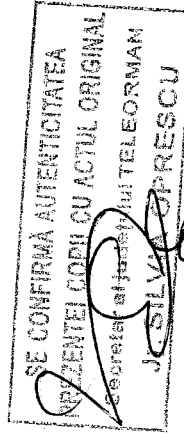 SE CONFIRMĂ AUTENTICITATEA
PREZENTEI COPII CU ACTUL ORIGINAL
Secretar al județului TELEORMAN
Jr. SILVIA OPRESCU